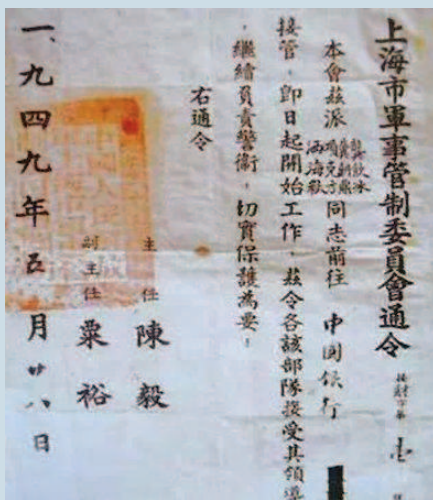 上海市軍事管制委員會通令
本會茲派龔飲冰冀朝鼎項克方同志前往 中國銀行
接管，即日起開始工作，茲令各該部隊接受其領導
，繼續負責警衛，切實保護為要。
右通令
主任 陳毅
副主任 粟裕
一九四九年五月廿八日